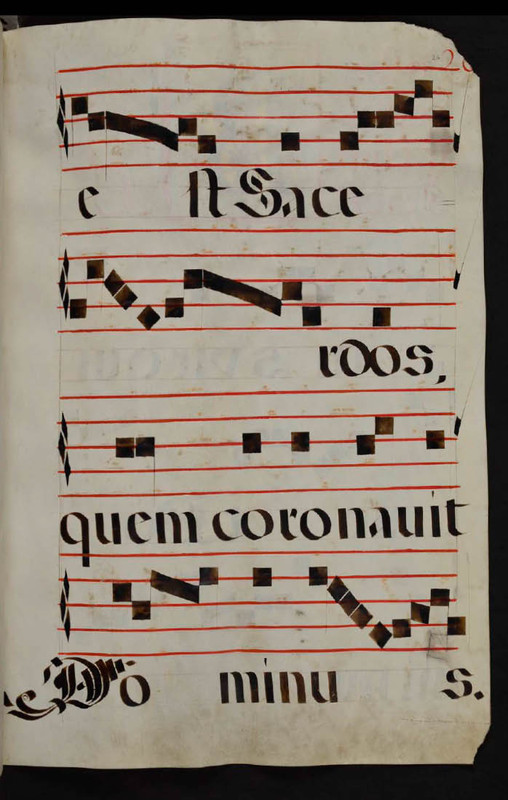 e st Sace
rdos,
quem coronauit
Do minu s.